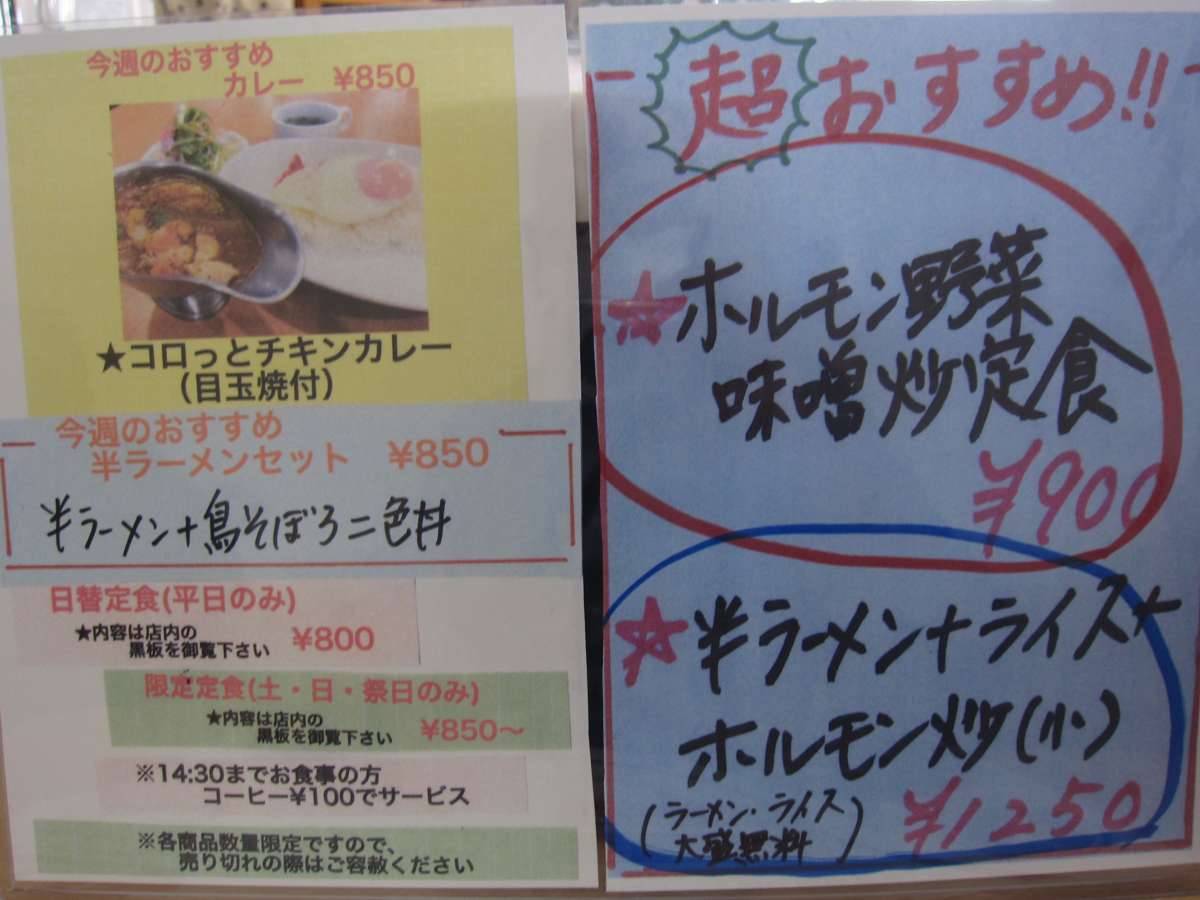 今週のおすすめ
カレー ¥850
★コロっとチキンカレー
（目玉焼付）
今週のおすすめ
半ラーメンセット ¥850
半ラーメン+鳥そぼろ二色丼
日替定食(平日のみ)
★内容は店内の
黒板を御覧下さい ¥800
限定定食(土・日・祭日のみ)
★内容は店内の
黒板を御覧下さい ¥850～
※14:30までお食事の方
コーヒー¥100でサービス
※各商品数量限定ですので、
売り切れの際はご容赦ください
超おすすめ!!
★ホルモン野菜
味噌炒定食
¥900
☆半ラーメン+ライス+
ホルモン炒(小)
(ラーメン・ライス
大盛無料)
¥1250